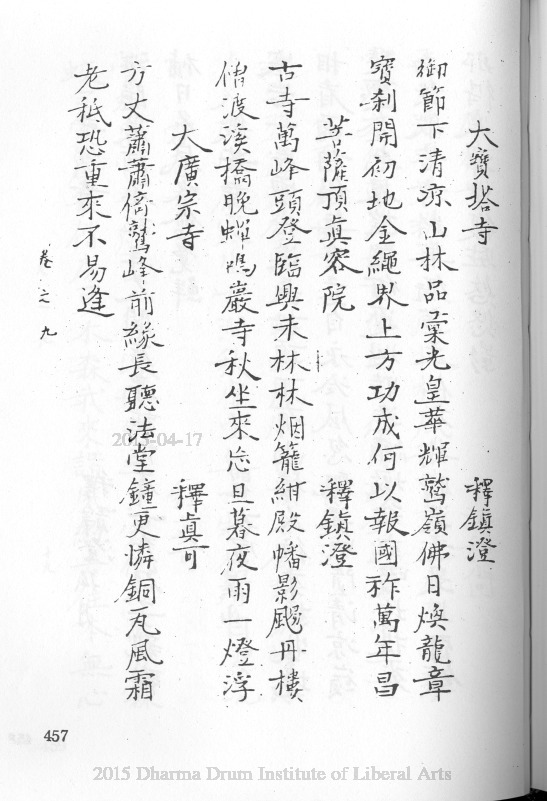 大寶塔寺　釋鎮澄
御節下清凉山林品彚光皇華輝鷲嶺佛日煥龍章
寶刹開初地金繩界上方功成何以報國祚萬年昌
菩薩頂眞容院　釋鎮澄
古寺萬峰頭登臨興未林林烟籠紺殿幡影颺丹樓
僧渡溪橋晚蟬鳴巖寺秋坐來忘旦暮夜雨一燈浮
大廣宗寺　釋眞可
方丈蕭蕭倚鷲峰前緣長聽法堂鐘更憐銅瓦風霜
老秖恐重來不易逢
卷之九
457
2015-04-17
2015 Dharma Drum Institute of Liberal Arts